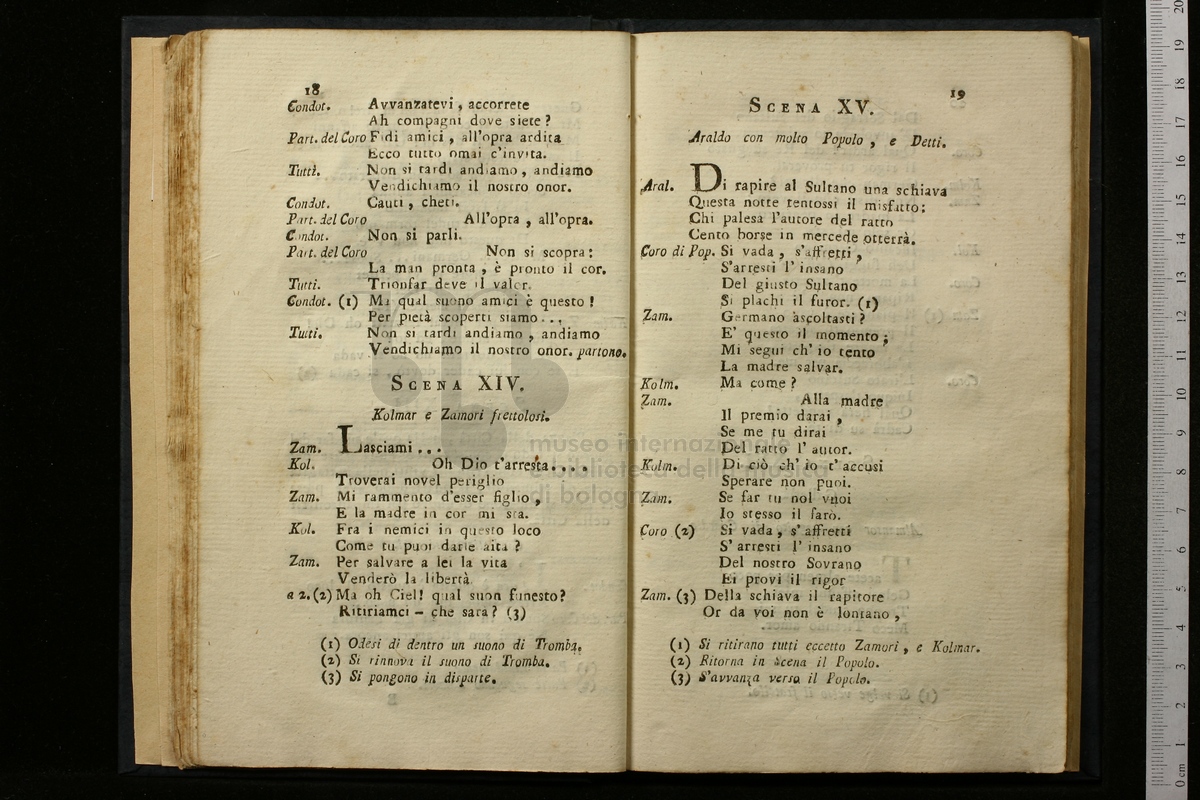 18
Condot. Avvanzatevi , accorrete
Ah compagni dove siete ?
Part. del Coro Fidi amici , all'opra ardita
Ecco tutto omai c'invita.
Tutti. Non si tardi andiamo , andiamo
Vendichiamo il nostro onor.
Condot. Cauti , cheti.
Part. del Coro All'opra , all'opra.
Condot. Non si parli.
Part. del Coro Non si scopra :
La man pronta , è pronto il cor.
Tutti. Trionfar deve il valor.
Condot. (1) Ma qual suono amici è questo !
Per pietà scoperti siamo ...
Tutti. Non si tardi andiamo , andiamo
Vendichiamo il nostro onor. partono.
SCENA XIV.
Kolmar e Zamori frettolosi.
Zam. Lasciami ...
Kol. Oh Dio t'arresta ....
Troverai novel periglio
Zam. Mi rammento d'esser figlio ,
E la madre in cor mi sta.
Kol. Fra i nemici in questo loco
Come tu puoi darle aita ?
Zam. Per salvare a lei la vita
Venderò la libertà.
a 2. (2) Ma oh Ciel! qual suon funesto?
Ritiriamci – che sarà ? (3)
(1) Odesi di dentro un suono di Tromba.
(2) Si rinnova il suono di Tromba.
(3) Si pongono in disparte.
B
19
SCENA XV.
Araldo con molto Popolo , e Detti.
Aral. Di rapire al Sultano una schiava
Questa notte tentossi il misfatto :
Chi palesa l'autore del ratto
Cento borse in mercede otterrà.
Coro di Pop. Si vada , s'affretti ,
S'arresti l' insano
Del giusto Sultano
Si plachi il furor. (1)
Zam. Germano ascoltasti ?
E' questo il momento ;
Mi segui ch' io tento
La madre salvar.
Kolm. Ma come ?
Zam. Alla madre
Il premio darai ,
Se me tu dirai
Del ratto l' autor.
Kolm. Di ciò ch' io t' accusi
Sperare non puoi.
Zam. Se far tu nol vuoi
Io stesso il farò.
Coro (2) Si vada , s' affretti
S' arresti l' insano
Del nostro Sovrano
Ei provi il rigor
Zam. (3) Della schiava il rapitore
Or da voi non è lontano ,
(1) Si ritirano tutti eccetto Zamori , e Kolmar.
(2) Ritorna in Scena il Popolo.
(3) S'avvanza verso il Popolo.
museo internazionale
e biblioteca della musica
di bologna
0 cm 1 2 3 4 5 6 7 8 9 10 11 12 13 14 15 16 17 18 19 20